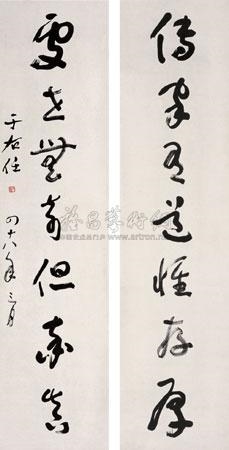 傳家有道惟存厚
處世無奇但率真
于右任
四十八年三月
www.artron.net